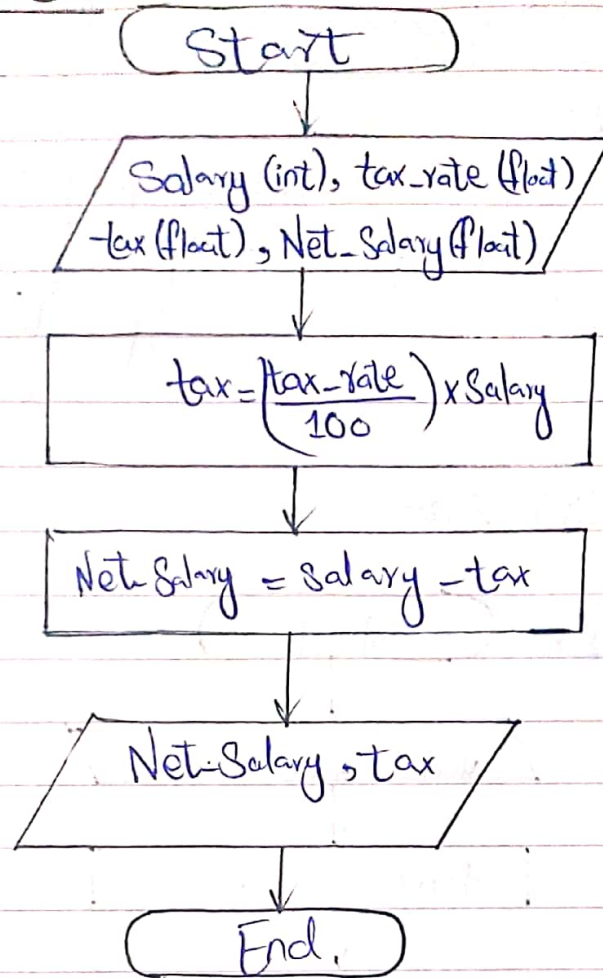 Start
Salary (int), tax_rate (float)
tax (float), Net_Salary (float)
tax = (tax_rate / 100) x Salary
Net Salary = Salary - tax
Net-Salary, tax
End.